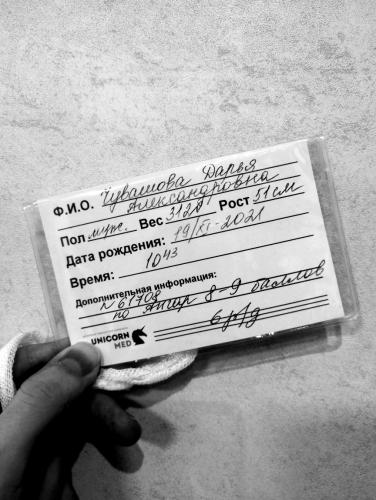 Ф.И.О. Чувашова Дарья
Александровна
Пол муж. Вес 3120 Рост 51 см
Дата рождения: 19/XI-2021
Время: 10 43
Дополнительная информация:
N 61708
по Апгар 8-9 баллов
6 р/д
UNICORN
MED